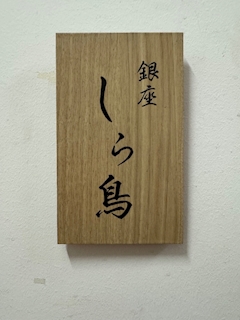 銀座
しら鳥